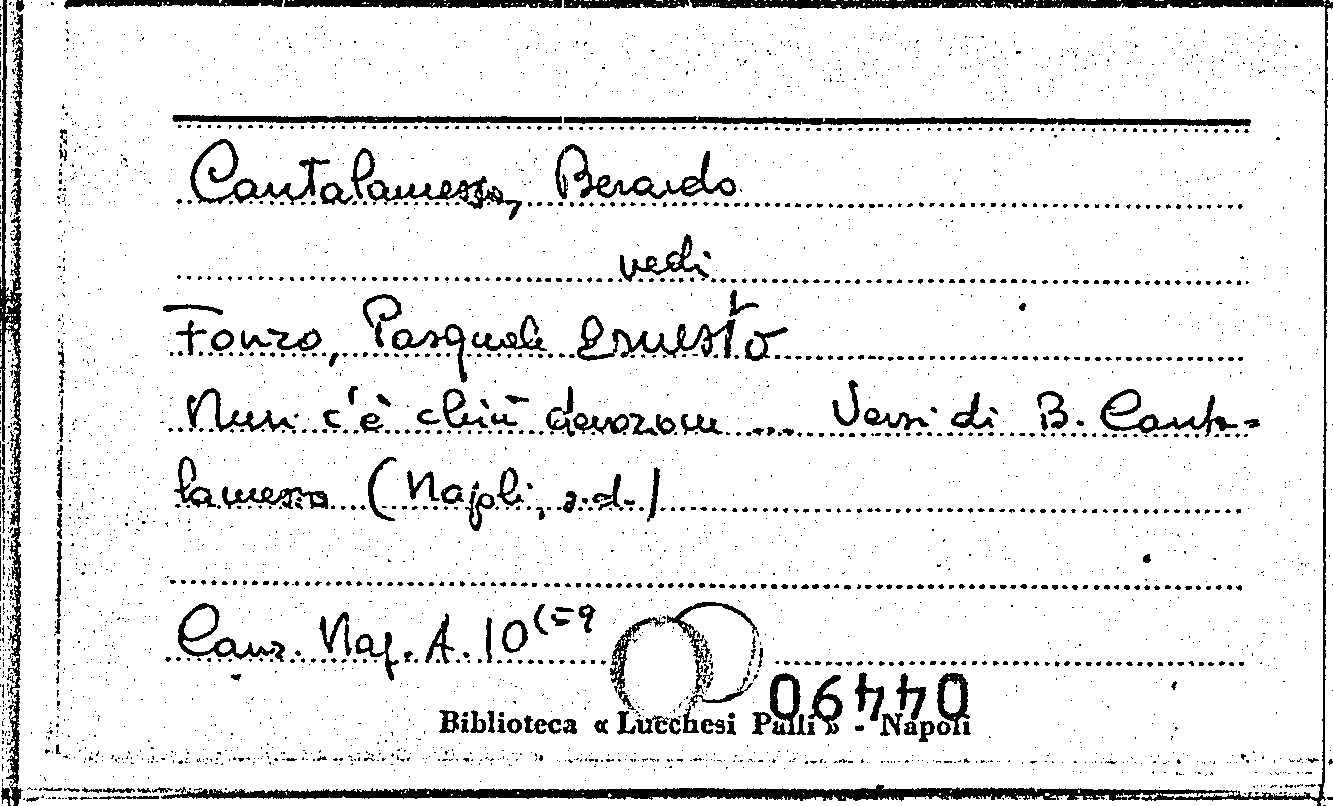 Cantalamessa, Berardo
vedi
Fonzo, Pasquale Ernesto
Nun c'è chiù devozione ... Versi di B. Canta=
lamessa (Napoli, s.d.)
Canz. Nap. A. 10 (=9
04490
Biblioteca « Lucchesi Palli » - Napoli